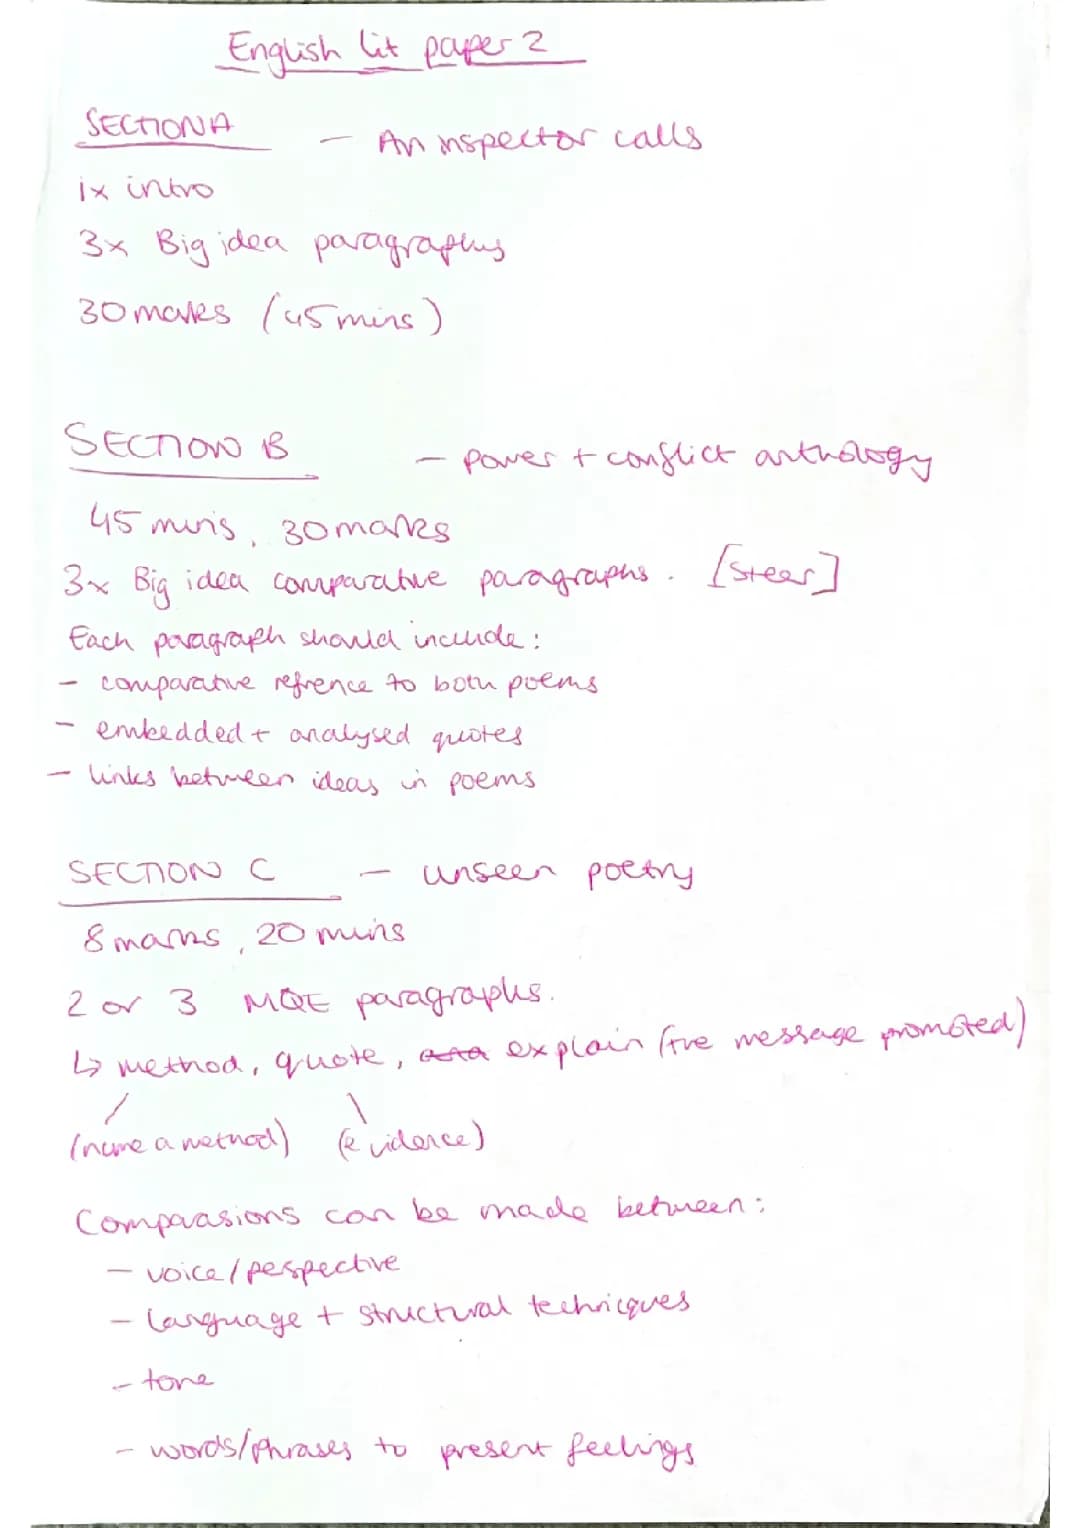 English lit paper 2
SECTION A - An inspector calls
1x intro
3x Big idea paragraphs
30 marks (45 mins)
SECTION B - power + conflict anthology
45 mins, 30 marks
3x Big idea comparative paragraphs. [Steer]
Each paragraph should include:
- comparative refrence to both poems
- embedded + analysed quotes
- links between ideas in poems
SECTION C - unseen poetry
8 marks, 20 mins
2 or 3 MQE paragraphs.
↳ method, quote, explain (the message promoted)
(name a method) (evidence)
Compaasions can be made between:
- voice/pespective
- language + structural technicques
- tone
- words/phrases to present feelings